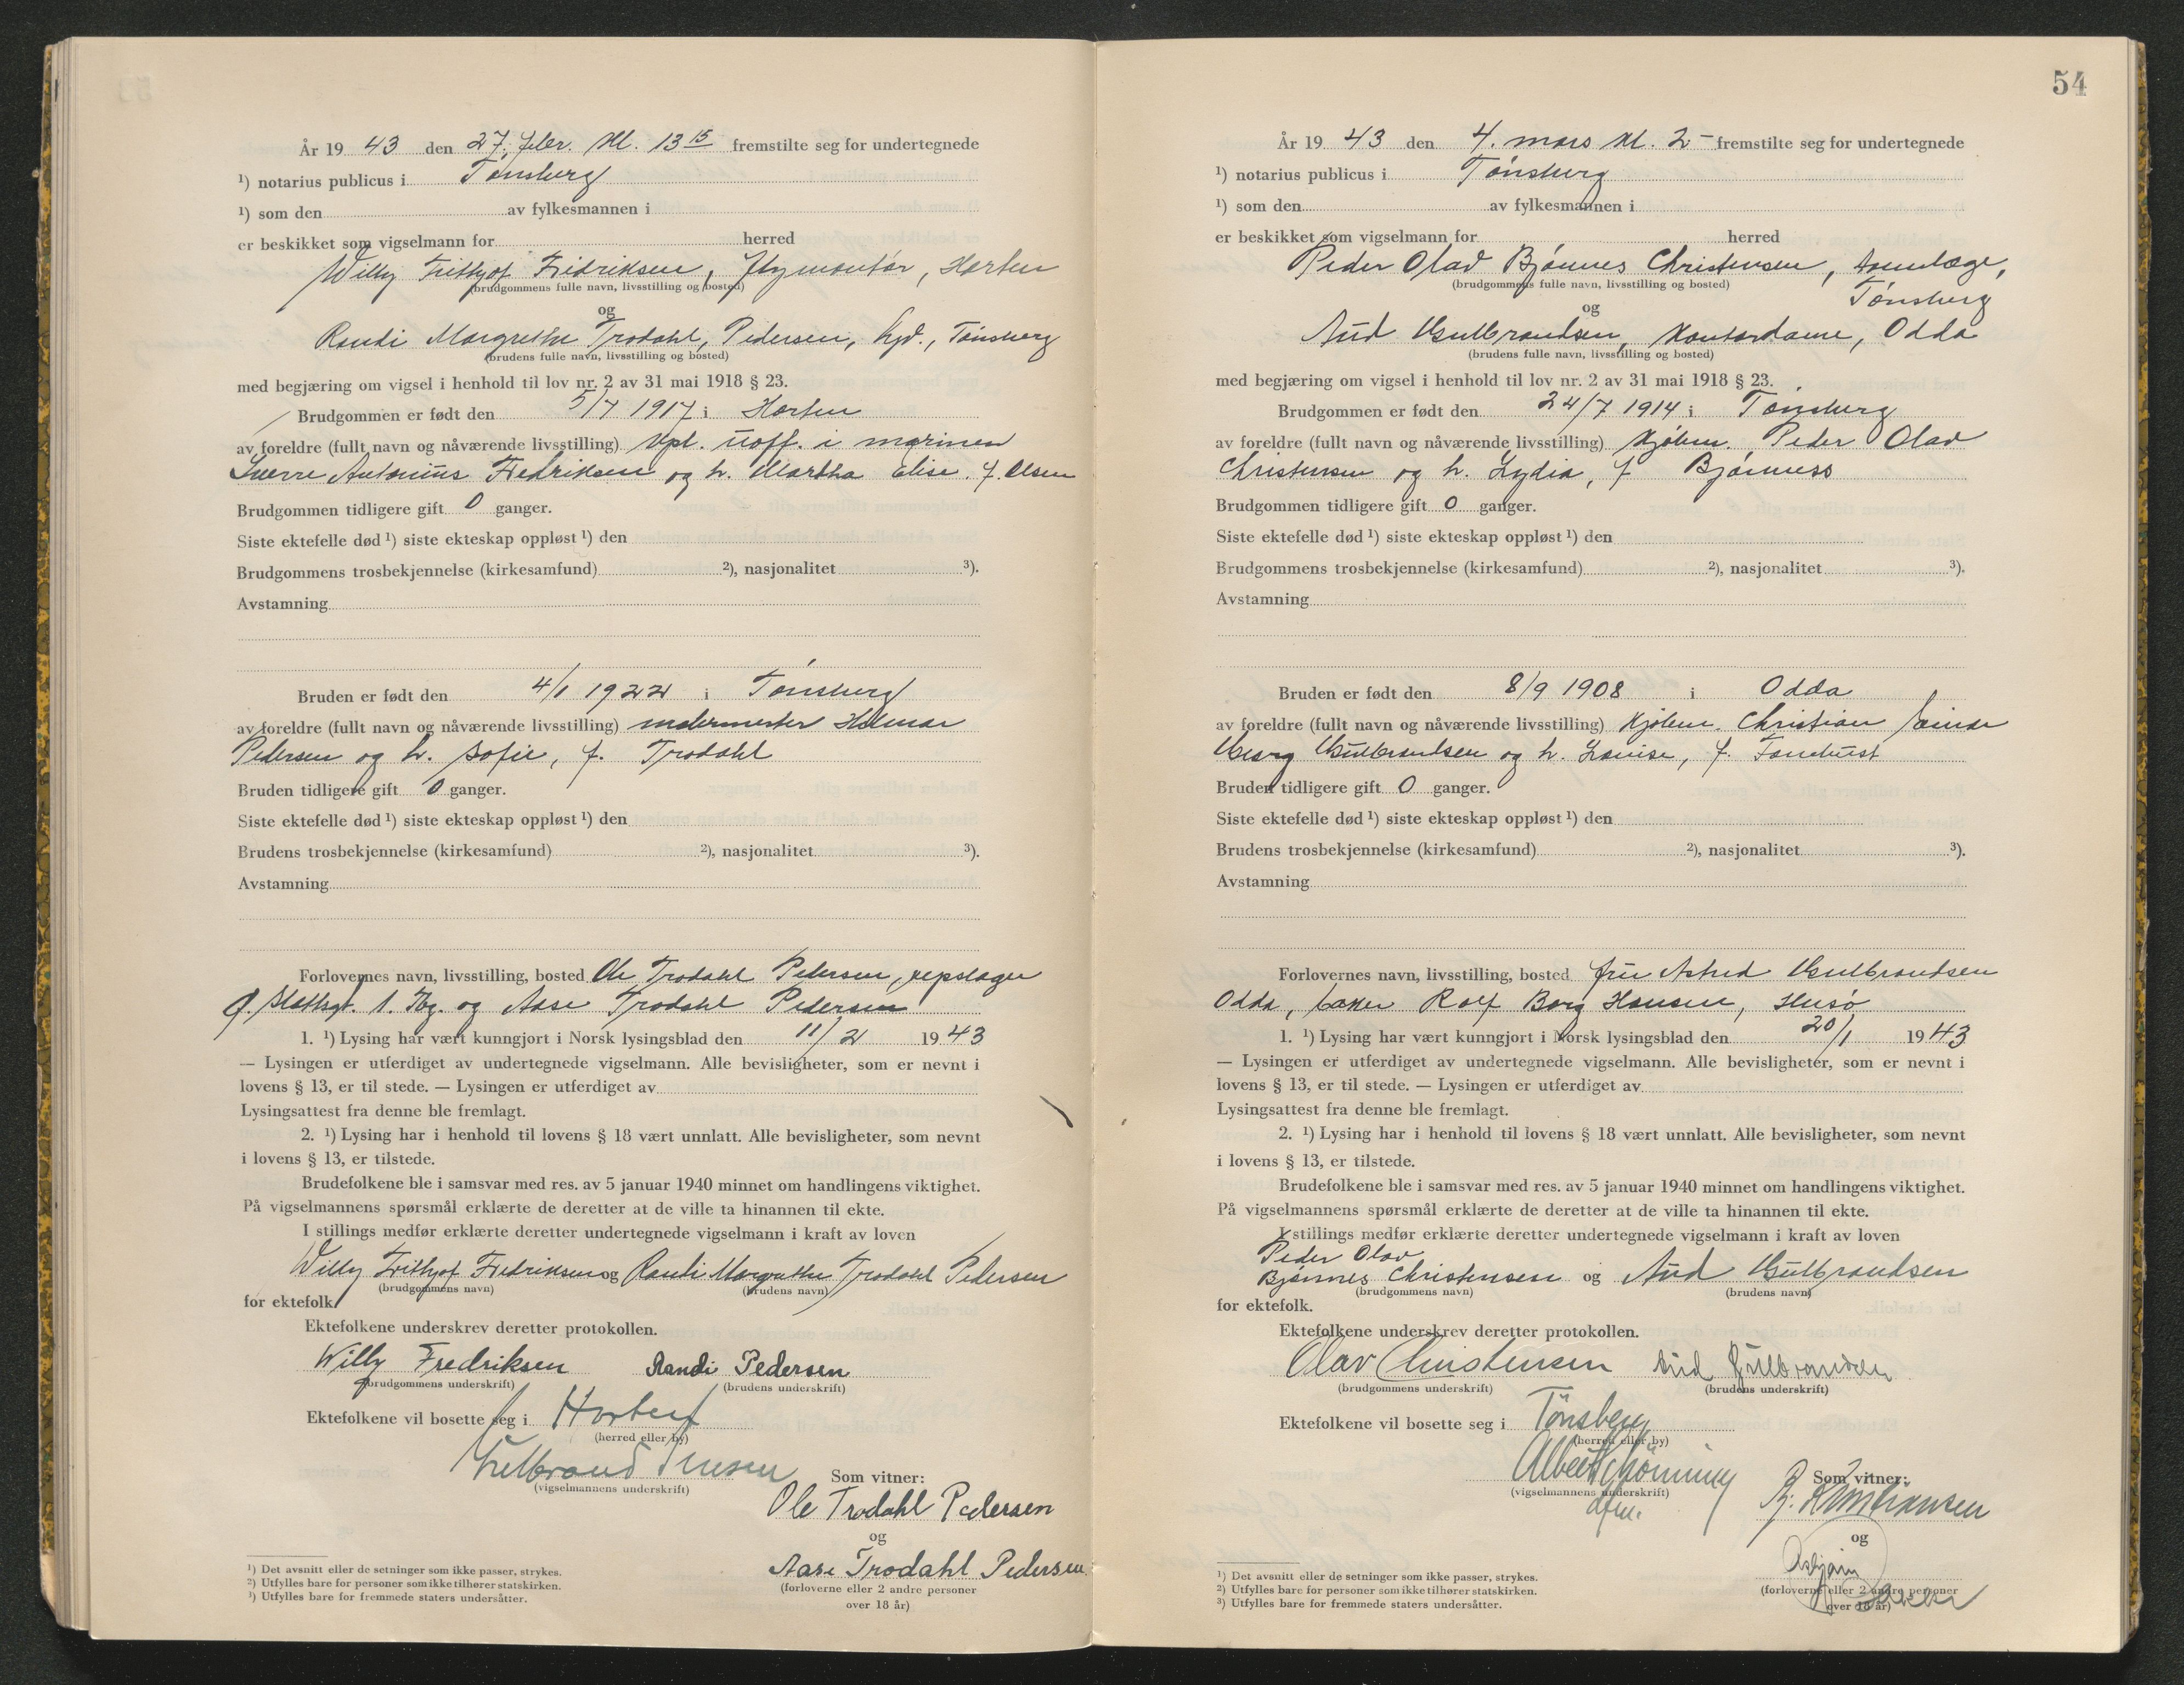 År 19 43 den 27. febr. kl. 13 15 fremstilte seg for undertegnede
1) notarius publicus i Tønsberg
1) som den av fylkesmannen i
er beskikket som vigselmann for herred
Willy Frithjof Fredriksen, flymontør, Horten
(brudgommens fulle navn, livsstilling og bosted)
og
Randi Margrethe Trodahl, Pedersen, syd., Tønsberg
(brudens fulle navn, livsstilling og bosted)
med begjæring om vigsel i henhold til lov nr. 2 av 31 mai 1918 § 23.
Brudgommen er født den 5/7 1917 i Horten
av foreldre (fullt navn og nåværende livsstilling) vpl. uoff. i marinen
Sverre Antonius Fredriksen og h. Martha Elise. f. Olsen
Brudgommen tidligere gift 0 ganger.
Siste ektefelle død 1) siste ekteskap oppløst 1) den
Brudgommens trosbekjennelse (kirkesamfund) 2), nasjonalitet 3).
Avstamning
Bruden er født den 4/1 1922 i Tønsberg
av foreldre (fullt navn og nåværende livsstilling) malermester Hilmar
Pedersen og h. Sofie, f. Trodahl
Bruden tidligere gift 0 ganger.
Siste ektefelle død 1) siste ekteskap oppløst 1) den
Brudens trosbekjennelse (kirkesamfund) 2), nasjonalitet 3).
Avstamning
Forlovernes navn, livsstilling, bosted Ole Trodahl Pedersen, repslager
1. Tbg. og Aase Trodahl Pedersen
1. 1) Lysing har vært kunngjort i Norsk lysingsblad den 11/2 19 43
— Lysingen er utferdiget av undertegnede vigselmann. Alle bevisligheter, som er nevnt i
lovens § 13, er til stede. — Lysingen er utferdiget av
Lysingsattest fra denne ble fremlagt.
2. 1) Lysing har i henhold til lovens § 18 vært unnlatt. Alle bevisligheter, som nevnt
i lovens § 13, er tilstede.
Brudefolkene ble i samsvar med res. av 5 januar 1940 minnet om handlingens viktighet.
På vigselmannens spørsmål erklærte de deretter at de ville ta hinannen til ekte.
I stillings medfør erklærte deretter undertegnede vigselmann i kraft av loven
Willy Frithjof Fredriksen og Randi Margrethe Trodahl Pedersen
(brudgommens navn) (brudens navn)
for ektefolk.
Ektefolkene underskrev deretter protokollen.
Willy Fredriksen Randi Pedersen
(brudgommens underskrift) (brudens underskrift)
Ektefolkene vil bosette seg i Horten
(herred eller by)
(vigselmannens underskrift)
Som vitner:
Ole Trodahl Pedersen
og
Aase Trodahl Pedersen
(forloverne eller 2 andre personer
over 18 år)
1) Det avsnitt eller de setninger som ikke passer, strykes.
2) Utfylles bare for personer som ikke tilhører statskirken.
3) Utfylles bare for fremmede staters undersåtter.
54
År 19 43 den 4. mars kl. 2 – fremstilte seg for undertegnede
1) notarius publicus i Tønsberg
1) som den av fylkesmannen i
er beskikket som vigselmann for herred
Peder Olav Bjønnes Christensen, tannlæge,
Tønsberg
(brudgommens fulle navn, livsstilling og bosted)
og
Aud Gulbrandsen, kontordame, Odda
(brudens fulle navn, livsstilling og bosted)
med begjæring om vigsel i henhold til lov nr. 2 av 31 mai 1918 § 23.
Brudgommen er født den 24/7 1914 i Tønsberg
av foreldre (fullt navn og nåværende livsstilling) kjøbm. Peder Olav
Christensen og h. Lydia, f Bjønness
Brudgommen tidligere gift 0 ganger.
Siste ektefelle død 1) siste ekteskap oppløst 1) den
Brudgommens trosbekjennelse (kirkesamfund) 2), nasjonalitet 3).
Avstamning
Bruden er født den 8/9 1908 i Odda
av foreldre (fullt navn og nåværende livsstilling) kjøbm. Christian Einar
Georg Gulbrandsen og h. Louise, f.
Bruden tidligere gift 0 ganger.
Siste ektefelle død 1) siste ekteskap oppløst 1) den
Brudens trosbekjennelse (kirkesamfund) 2), nasjonalitet 3).
Avstamning
Forlovernes navn, livsstilling, bosted fru Astrid Gulbrandsen
Odda, baker Rolf Borg Hansen, Husø
1. 1) Lysing har vært kunngjort i Norsk lysingsblad den 20/1 19 43
— Lysingen er utferdiget av undertegnede vigselmann. Alle bevisligheter, som er nevnt i
lovens § 13, er til stede. — Lysingen er utferdiget av
Lysingsattest fra denne ble fremlagt.
2. 1) Lysing har i henhold til lovens § 18 vært unnlatt. Alle bevisligheter, som nevnt
i lovens § 13, er tilstede.
Brudefolkene ble i samsvar med res. av 5 januar 1940 minnet om handlingens viktighet.
På vigselmannens spørsmål erklærte de deretter at de ville ta hinannen til ekte.
I stillings medfør erklærte deretter undertegnede vigselmann i kraft av loven
Peder Olav
Bjønnes Christensen og Aud Gulbrandsen
(brudgommens navn) (brudens navn)
for ektefolk.
Ektefolkene underskrev deretter protokollen.
Olav Christensen Aud Gulbrandsen
(brudgommens underskrift) (brudens underskrift)
Ektefolkene vil bosette seg i Tønsberg
(herred eller by)
Albert Schønning
(vigselmannens underskrift)
dfm.
Som vitner:
Kristiansen
og
Asbjørn
(forloverne eller 2 andre personer
over 18 år)
1) Det avsnitt eller de setninger som ikke passer, strykes.
2) Utfylles bare for personer som ikke tilhører statskirken.
3) Utfylles bare for fremmede staters undersåtter.